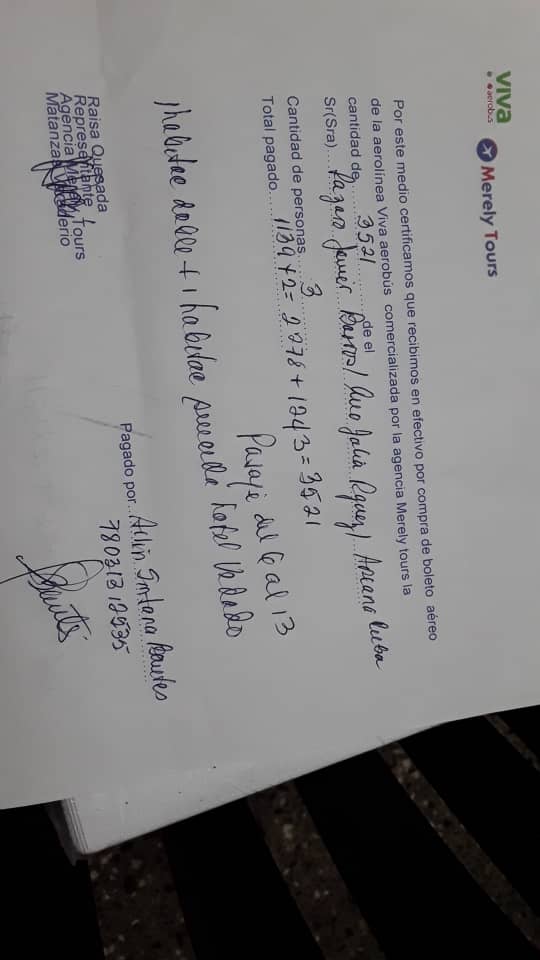 viva
aerobus
Merely Tours
Por este medio certificamos que recibimos en efectivo por compra de boleto aéreo
de la aerolínea Viva aerobús comercializada por la agencia Merely tours la
cantidad de 3521 de el
Sr(Sra) Lazaro Javier / Ana Julia / Cuba
Cantidad de personas 3
Total pagado 1139 + 2 = 2278 + 1243 = 3521
Pasaje del 6 al 13
1 habitac doble + 1 habitac sencilla hotel Vedado
Pagado por Santana
78031312535
Raisa Quesada
Representante
Agencia Merely Tours
Matanzas